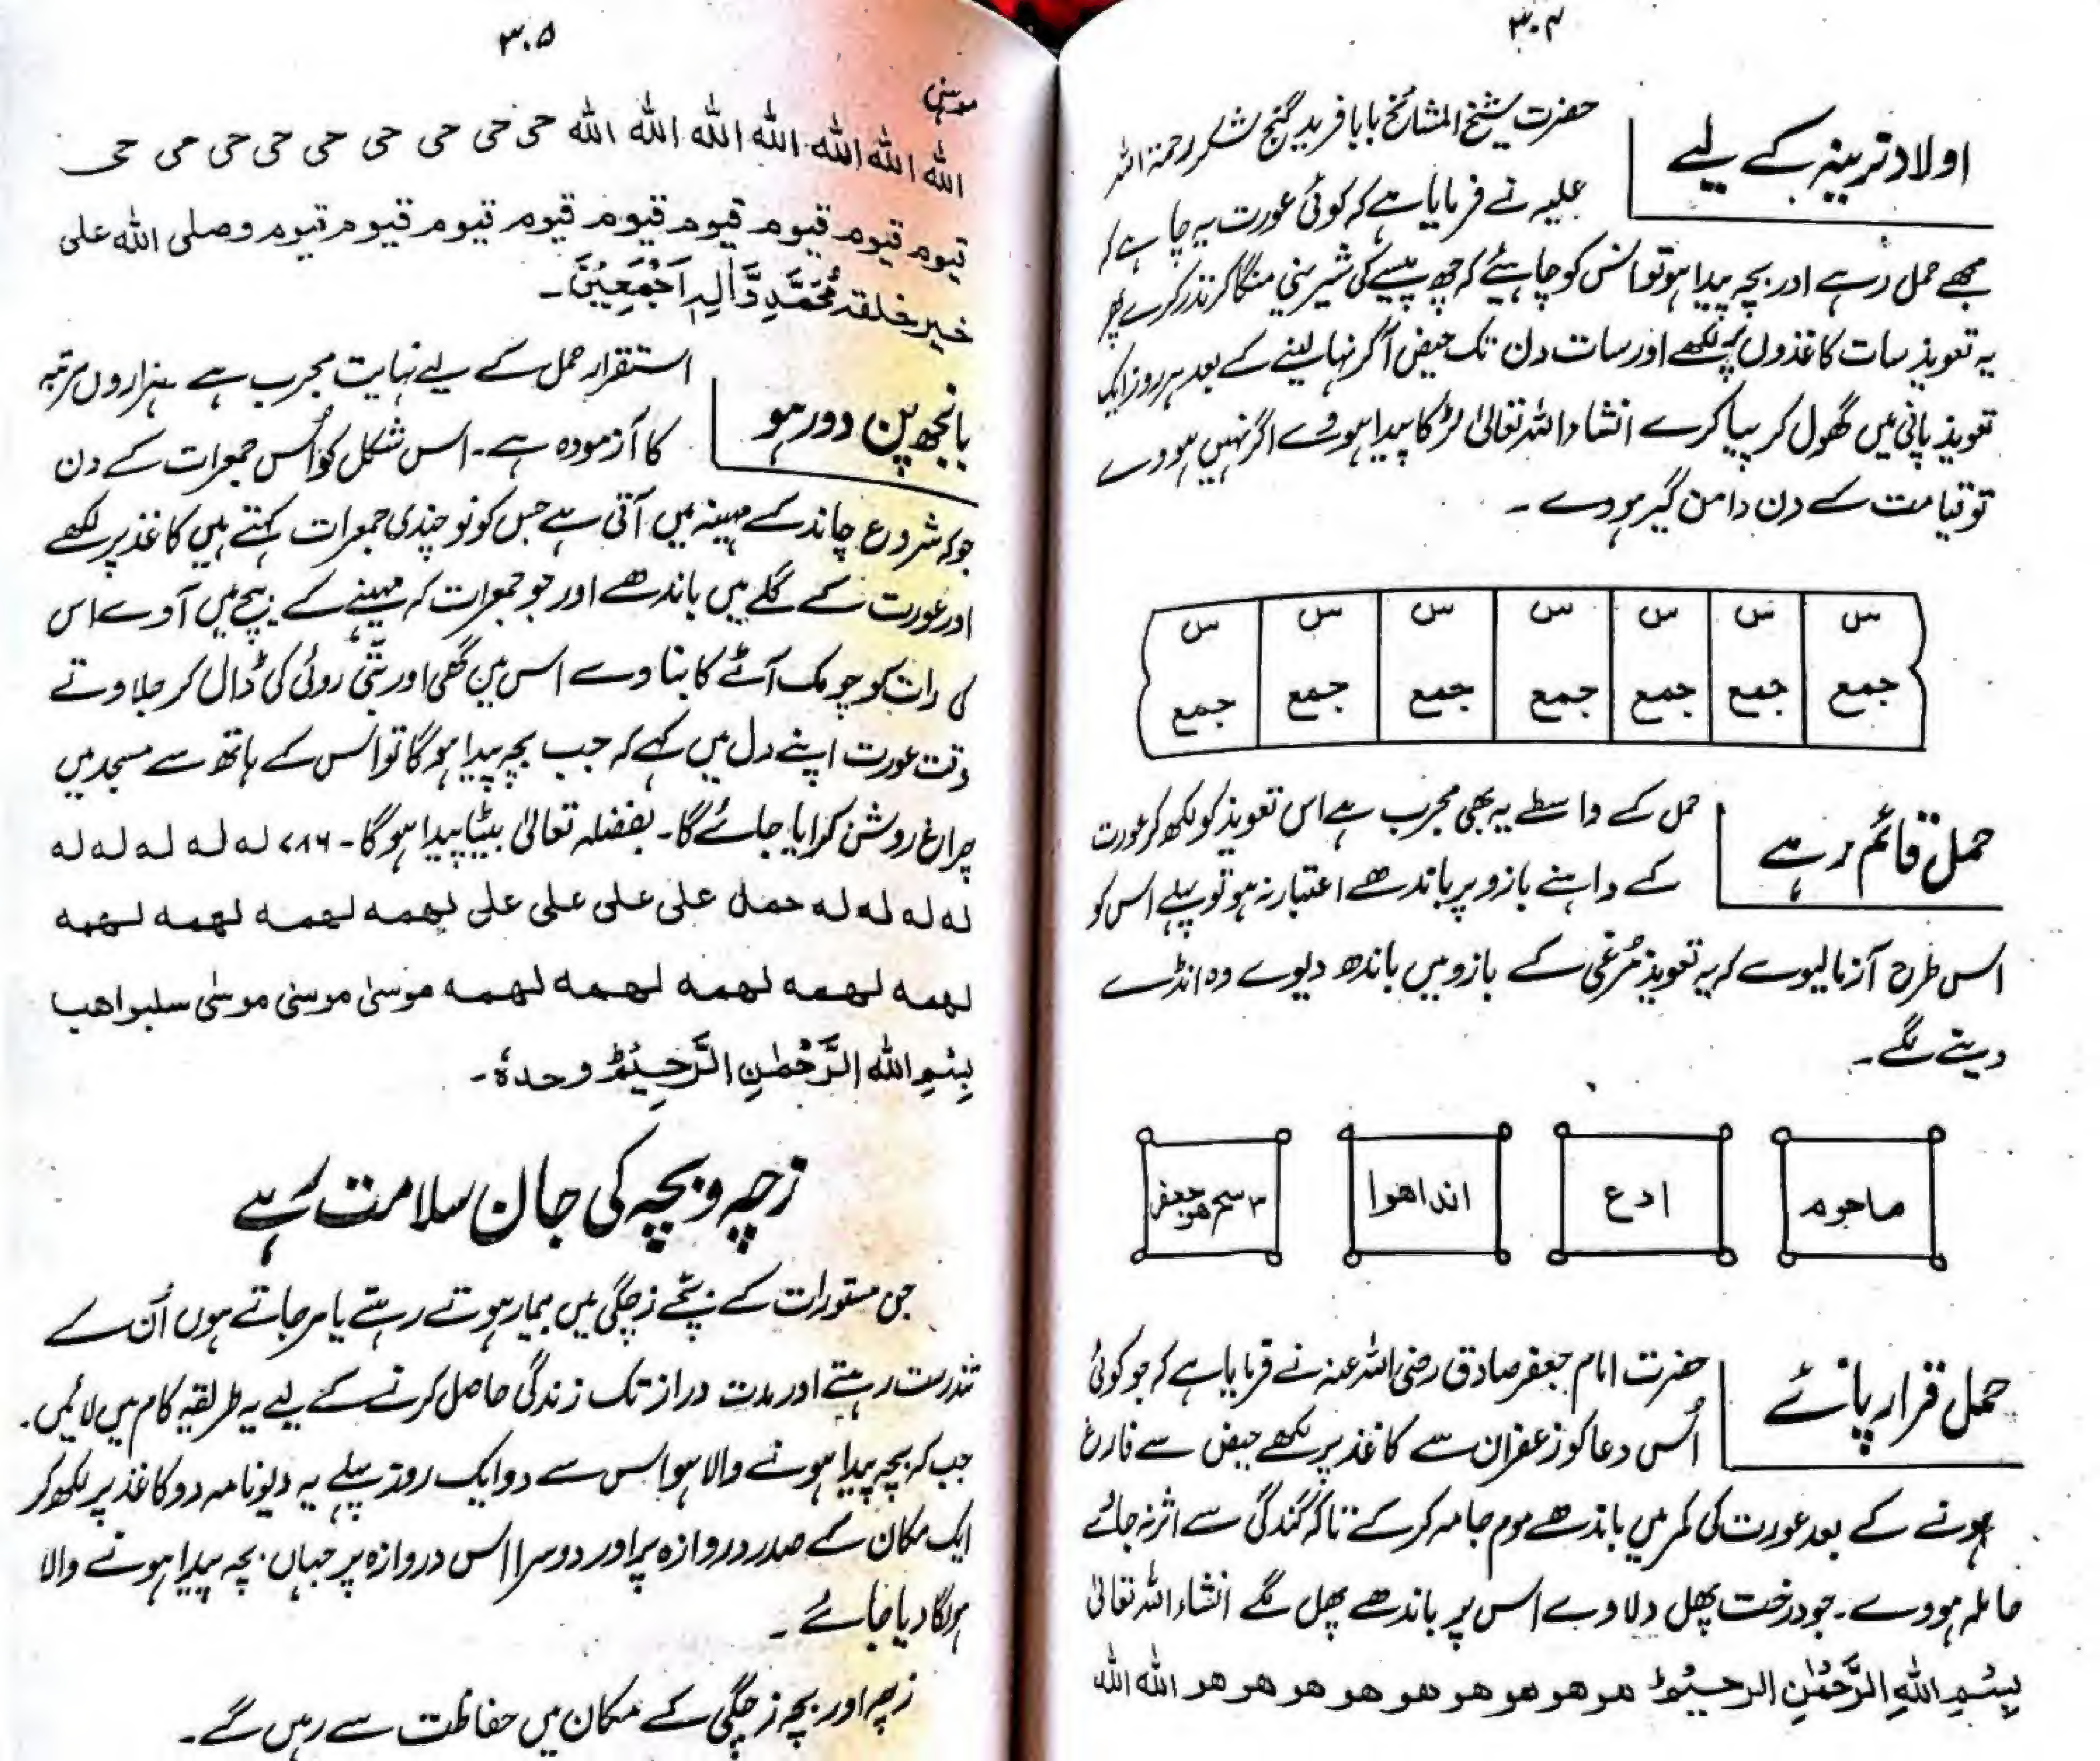 ۳۰۴
اولاد نرینہ کے لیے
حضرت شیخ المشائخ بابا فرید گنج شکر رحمۃ اللہ
علیہ نے فرمایا ہے کہ کوئی عورت یہ چاہے کہ
مجھے حمل رہے اور بچہ پیدا ہو تو اس کو چاہیئے کہ چھ پیسے کی شیرینی منگا کر نذر کرے پھر
یہ تعویذ سات کاغذوں پہ لکھے اور سات دن تک حیض آ کر نہا لینے کے بعد ہر روز ایک
تعویذ پانی میں گھول کر پیا کرے انشاء اللہ تعالیٰ لڑکا پیدا ہووے اگر نہیں ہووے
تو قیامت کے دن دامن گیر ہووے ۔
س س س س س س س
جمع جمع جمع جمع جمع جمع جمع
حمل قائم رہے
حمل کے واسطے یہ بھی مجرب ہے اس تعویذ کو لکھ کر عورت
کے داہنے بازو پر باندھے اعتبار نہ ہو تو پہلے اس کو
اس طرح آزما لیوے کہ یہ تعویذ مُرغی کے بازو میں باندھ دیوے وہ انڈے
دینے لگے ۔
ماحوم ادع انداھوا
حمل قرار پائے
حضرت امام جعفر صادق رضی اللہ عنہ نے فرمایا ہے کہ جو کوئی
اُس دعا کو زعفران سے کاغذ پر لکھے حیض سے فارغ
ہونے کے بعد عورت کی کمر میں باندھے موم جامہ کرکے تاکہ گندگی سے اثر نہ جائے
حاملہ ہووے ۔ جو درخت پھل نہ لاوے اس پر باندھے پھل لگے انشاء اللہ تعالیٰ
بِسْمِ اللهِ الرَّحْمٰنِ الرحیْمْ ھو ھو ھو ھو ھو ھو ھو ھو ھو اللہ اللہ
۳۰۵
موسٰی
اللہ اللہ اللہ اللہ اللہ اللہ اللہ اللہ حی حی حی حی حی حی حی حی حی
قیوم قیوم قیوم قیوم قیوم قیوم قیوم قیوم قیوم قیوم وصلی اللہ علی
خیر خلقہ مُحَمَّدٍ وَّاٰلِہٖ اَجْمَعِیْنَ ۔
بانجھ پن دور ہو
استقرار حمل کے لیے نہایت مجرب ہے ہزاروں مرتبہ
کا آزمودہ ہے ۔ اس شکل کو اُس جمعرات کے دن
جو کہ شروع چاند کے مہینہ میں آتی ہے جس کو نو چندی جمعرات کہتے ہیں کاغذ پر لکھے
اور عورت کے گلے میں باندھے اور جو جمعرات کہ مہینے کے بیچ میں آوے اس
کی رات کو چومک آٹے کا بناوے اس میں گھی اور بتّی روئی کی ڈال کر جلاوتے
وقت عورت اپنے دل میں کہے کہ جب بچہ پیدا ہوگا تو اس کے ہاتھ سے مسجد میں
چراغ روشن کرایا جائے گا ۔ بفضلہ تعالیٰ بیٹا پیدا ہوگا ۔ ۷۸۶ لہ لہ لہ لہ لہ
لہ لہ لہ لہ حمل علی علی علی علی لہمہ لہمہ لہمہ لہمہ
لہمہ لہمہ لہمہ لہمہ لہمہ موسیٰ موسیٰ موسیٰ سلبواھب
بِسْمِ اللهِ الرَّحْمٰنِ الرَّحِیْمْ وحدہٗ ۔
زچہ و بچہ کی جان سلامت رہے
جن مستورات کے بچے زچگی میں بیمار ہوتے رہتے یا مر جاتے ہوں اُن کے
تندرست رہتے اور مدت دراز تک زندگی حاصل کرنے کے لیے یہ طریقہ کام میں لائیں ۔
جب کہ بچہ پیدا ہونے والا ہو اس سے دو ایک روز پہلے یہ دیونامہ دو کاغذ پر لکھ کر
ایک مکان کے صدر دروازہ پر اور دوسرا اس دروازہ پر جہاں بچہ پیدا ہونے والا
ہو لگا دیا جائے ۔
زچہ اور بچہ زچگی کے مکان میں حفاظت سے رہیں گے ۔